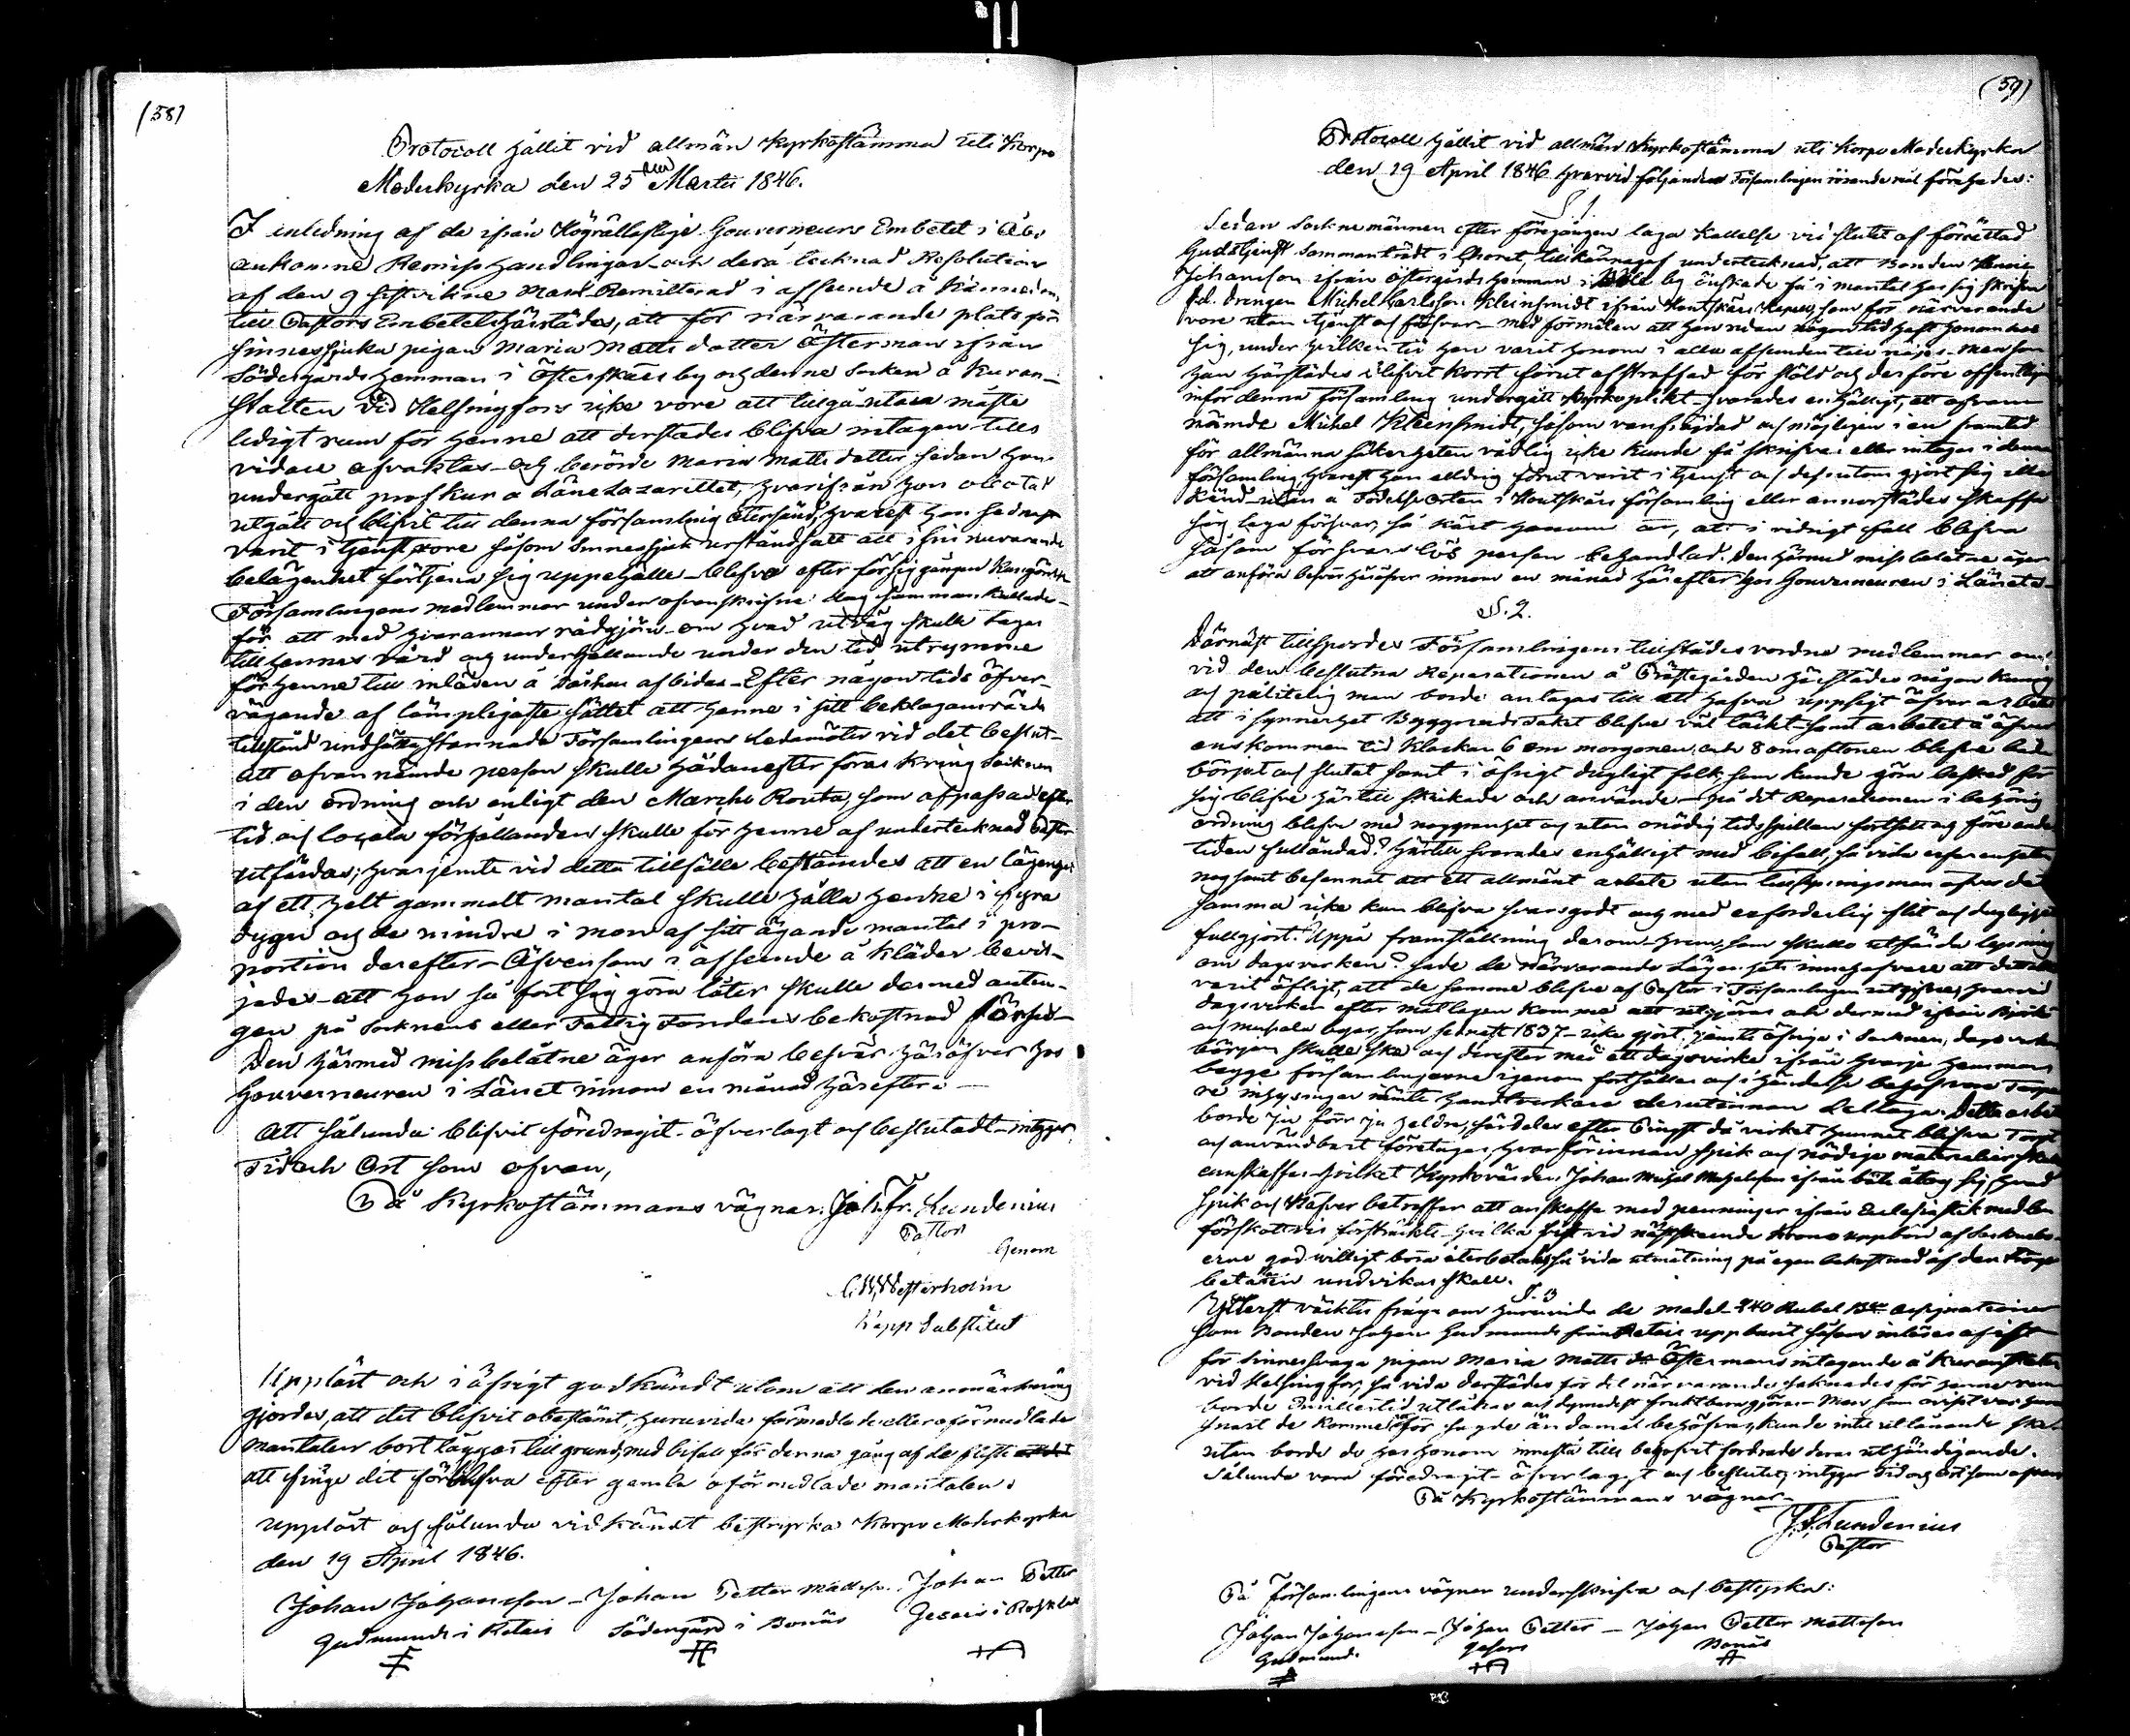 (58)
Protocoll hållit vid allmän Kyrkostämma uti Korpo
Moderkyrka den 25 Martii 1846.
I anledning af de ifrån Höglofliga Gouverneurs Embetet i Åbo
ankomne Remiss handlingar och derå tecknad Resolution
af den 9 sistvikne Mars Remitterad i afseende å
till Pastors Embetet härstädes, att för närvarande plats för
sinnessjuka pigan Maria Matts dotter Österman ifrån
Södergårds hemman i Österskärs by och denne Socken å Kuran-
stalten vid Helsingfors icke vore att tillgå utan måste
ledigt rum för henne att derstädes blifva intagen tills
vidare afvaktas och berörde Maria Matts dotter sedan hon
undergått profkur a Läns Lazarettet, hvarifrån hon
utgått och blifvit till denna församling återsänd, hvarest hon sednast
varit i tjenst vore såsom Sinnessjuk urståndsatt att i sin nuvarande
belägenhet förtjena sig uppehälle blefvo efter försiggången Kungörelse
Församlingens medlemmar under ofvanskrifne dag sammankallade
för att med hvarannan rådgöra om hvad utväg skulle tagas
till hennes vård och underhållande under den tid utrymme
för henne till inläsen å afbidas. Efter någon tids öfver-
vägande af lämpligaste sättet att henne i sitt beklagansvärda
tillstånd undsätta, stannade Församlingens Ledamöter vid det beslut
att ofvan nämde person skulle hädanefter föras kring Socknen
i den ordning och enligt den Marche Routa, som afpassad efter
tid och locala förhållanden skulle för henne af undertecknad Pastor
utfärdas; hvarjemte vid detta tillfälle bestämdes att en lägenhet
af ett helt gammalt mantal skulle hålla henne i fyra
dygn och de mindre i mon af sitt ägande mantal i pro-
portion derefter. Äfvensom i afseende å kläder bevil-
jades att hon så fort sig göra låter skulle dermed anten-
gen på Socknens eller Fattig Fondens bekostnad förses.
Den härmed missbelåtne äger anföra besvär häröfver hos
Gouverneuren i Länet innom en månad härefter.
Att sålunda blifvit föredragit öfverlagt och beslutadt intygar
Tid och Ort som ofvan,
På Kyrkostämmans vägnar: Joh. Fr. Lundenius
Pastor
Genom
C. W. Westerholm
Kapp Substitut
Uppläst och i öfrigt godkändt utom att den anmärkning
gjordes, att det blifvit obestämt, huruvida förmedlade eller oförmedlade
mantalen bort läggas till grund, med bifall för denna gång af de fleste
att finge det förblifva efter gamla oförmedlade mantalen.
Uppläst och sålunda vidkändt bestyrka Korpo Moderkyrka
den 19 April 1846.
Johan Johansson - Johan Petter Mattsson. Johan Petter
Gudmunds i Retais Södergård i Bonäs Gesars i
(59)
Protocoll hållit vid allmän Kyrkostämma uti Korpo Moderkyrka
den 19 April 1846 hvarvid följande Församlingen rörande mål förehades:
§ 1.
Sedan Socknemännen efter föregången laga Kallelse vid slutet af förrättad
Gudstjenst sammanträdt i Choret, tillkännagaf undertecknad, att Bonden Henric
Johansson ifrån Östergårds hemman i by önskade få i mantal hos sig skrifva
f.d. drengen Michel Carlsson Kleinsmidt ifrån Houtskärs Kapell, som för närvarande
vore utan tjenst och försvar med förmälan att han redan någon tid haft honom hos
sig, under hvilken tid han varit honom i alla afseenden till nöjes. Men som
han härstädes blifvit kort förut afstraffad för stöld och derföre offentligen
inför denna församling undergått Kyrkoplikt svarades enhälligt, att ofvan
nämde Michel Kleinsmidt, såsom vanfräjdad och möjligen i en framtid
för allmänna säkerheten vådlig icke kunde få skrifvas eller intagas i denna
församling, hvarest han alldrig förut varit i tjenst och dessutom gjort sig illa
känd utan å Födelseorten i Houtskärs församling eller annorstädes skaffa
sig laga försvar, så kärt honom är, att i vidrigt fall blifva
såsom försvarslös person behandlad. Den härmed missbelåtne äger
att anföra besvär häröfver innom en månad härefter hos Gouverneuren i Länet.
§. 2.
Därnäst tillspordes Församlingens tillstädes vordne medlemmar om
vid den beslutna Reparationen å Prästegården härstädes någon kunnig
och pålitelig man borde antagas till att hafva uppsigt öfver arbetet
att i synnerhet Byggnads taket blefve väl täckt samt arbetet å öfver
enskommen tid Klockan 6 om morgonen och 8 om aftonen blefve både
börjat och slutat samt i öfrigt dugligt folk, som kunde göra besked för
sig blefve härtill skickade och använde på det Reparationen i behörig
ordning blefve med noggranhet och utan onödig tidsspillan fortsatt och före
tiden fulländad? Härtill svarades enhälligt med bifall, så vida erfarenheten
nogsamt besannat att ett allmänt arbete utan tillsyningsman öfver det
samma icke kan blifva svarsgodt och med erforderlig flit och duglighet
fullgjort. Uppå framställning derom hvem, som skulle utfärda
om dagsverken? sade de närvarande Lägenhets innehafvare att det
varit öfligt, att de samma blefve af Pastor i Församlingen utgifne, hvarvid
dagsverken efter mållagen komme att utgöras och dermed ifrån
och byar, som sednast 1837 icke gjort, jämte öfrige i Socknen, dagsverken
början skulle ske och derefter med ett dagsverke ifrån hvarje hemman
begge församlingarne igenom fortsättas och i händelse behofvet
re inhysingar jämte handtverkare derutinnan deltaga. Detta arbete
borde ju förr ju heldre, särdeles efter Pingst då virket hunnit blifva torrt
och användbart företagas, hvarförinnan spik och nödige materialier skulle
anskaffas hvilket Kyrkovärden Johan Michel Michelsson ifrån åtog sig, hvad
spik och Näfver beträffar att anskaffa med penningar ifrån Ecclesiastik medlen
förskottsvis försträckte hvilka sist vid nästkommande Krono uppbörd af Socknebo-
erne godvilligt böra återbetalas, så vida utmätning på egen bekostnad af den tröge
betalaren undvikas skall.
§. 3
Ytterst väcktes fråga om huruvida de medel 240 Rubel B:co assignationer
som Bonden Johan Gudmunds från Retais uppburit såsom inlösen afgift
för Sinnessvaga pigan Maria Matts dr Östermans intagande å Kuranstalten
vid Helsingfors, så vida derstädes för det närvarande saknades för henne rum
borde imellertid utlånas och dymedelst fruktbargöras. Men som ovist var huru
snart de komme för sagde ändamål behöfvas, kunde intet utlånande ske
utan borde de hos honom innestå tills behofvet fordrade deras uthändigande.
Sålunda vara föredragit öfverlagt och beslutit, intygar Tid och Ort som ofvan
På Kyrkostämmans vägnar
J. F. Lundenius
Pastor
På församlingens vägnar underskrifva och bestyrka:
Johan Johansson - Johan Petter - Johan Petter Mattsson
Gudmunds Gesars Bonäs